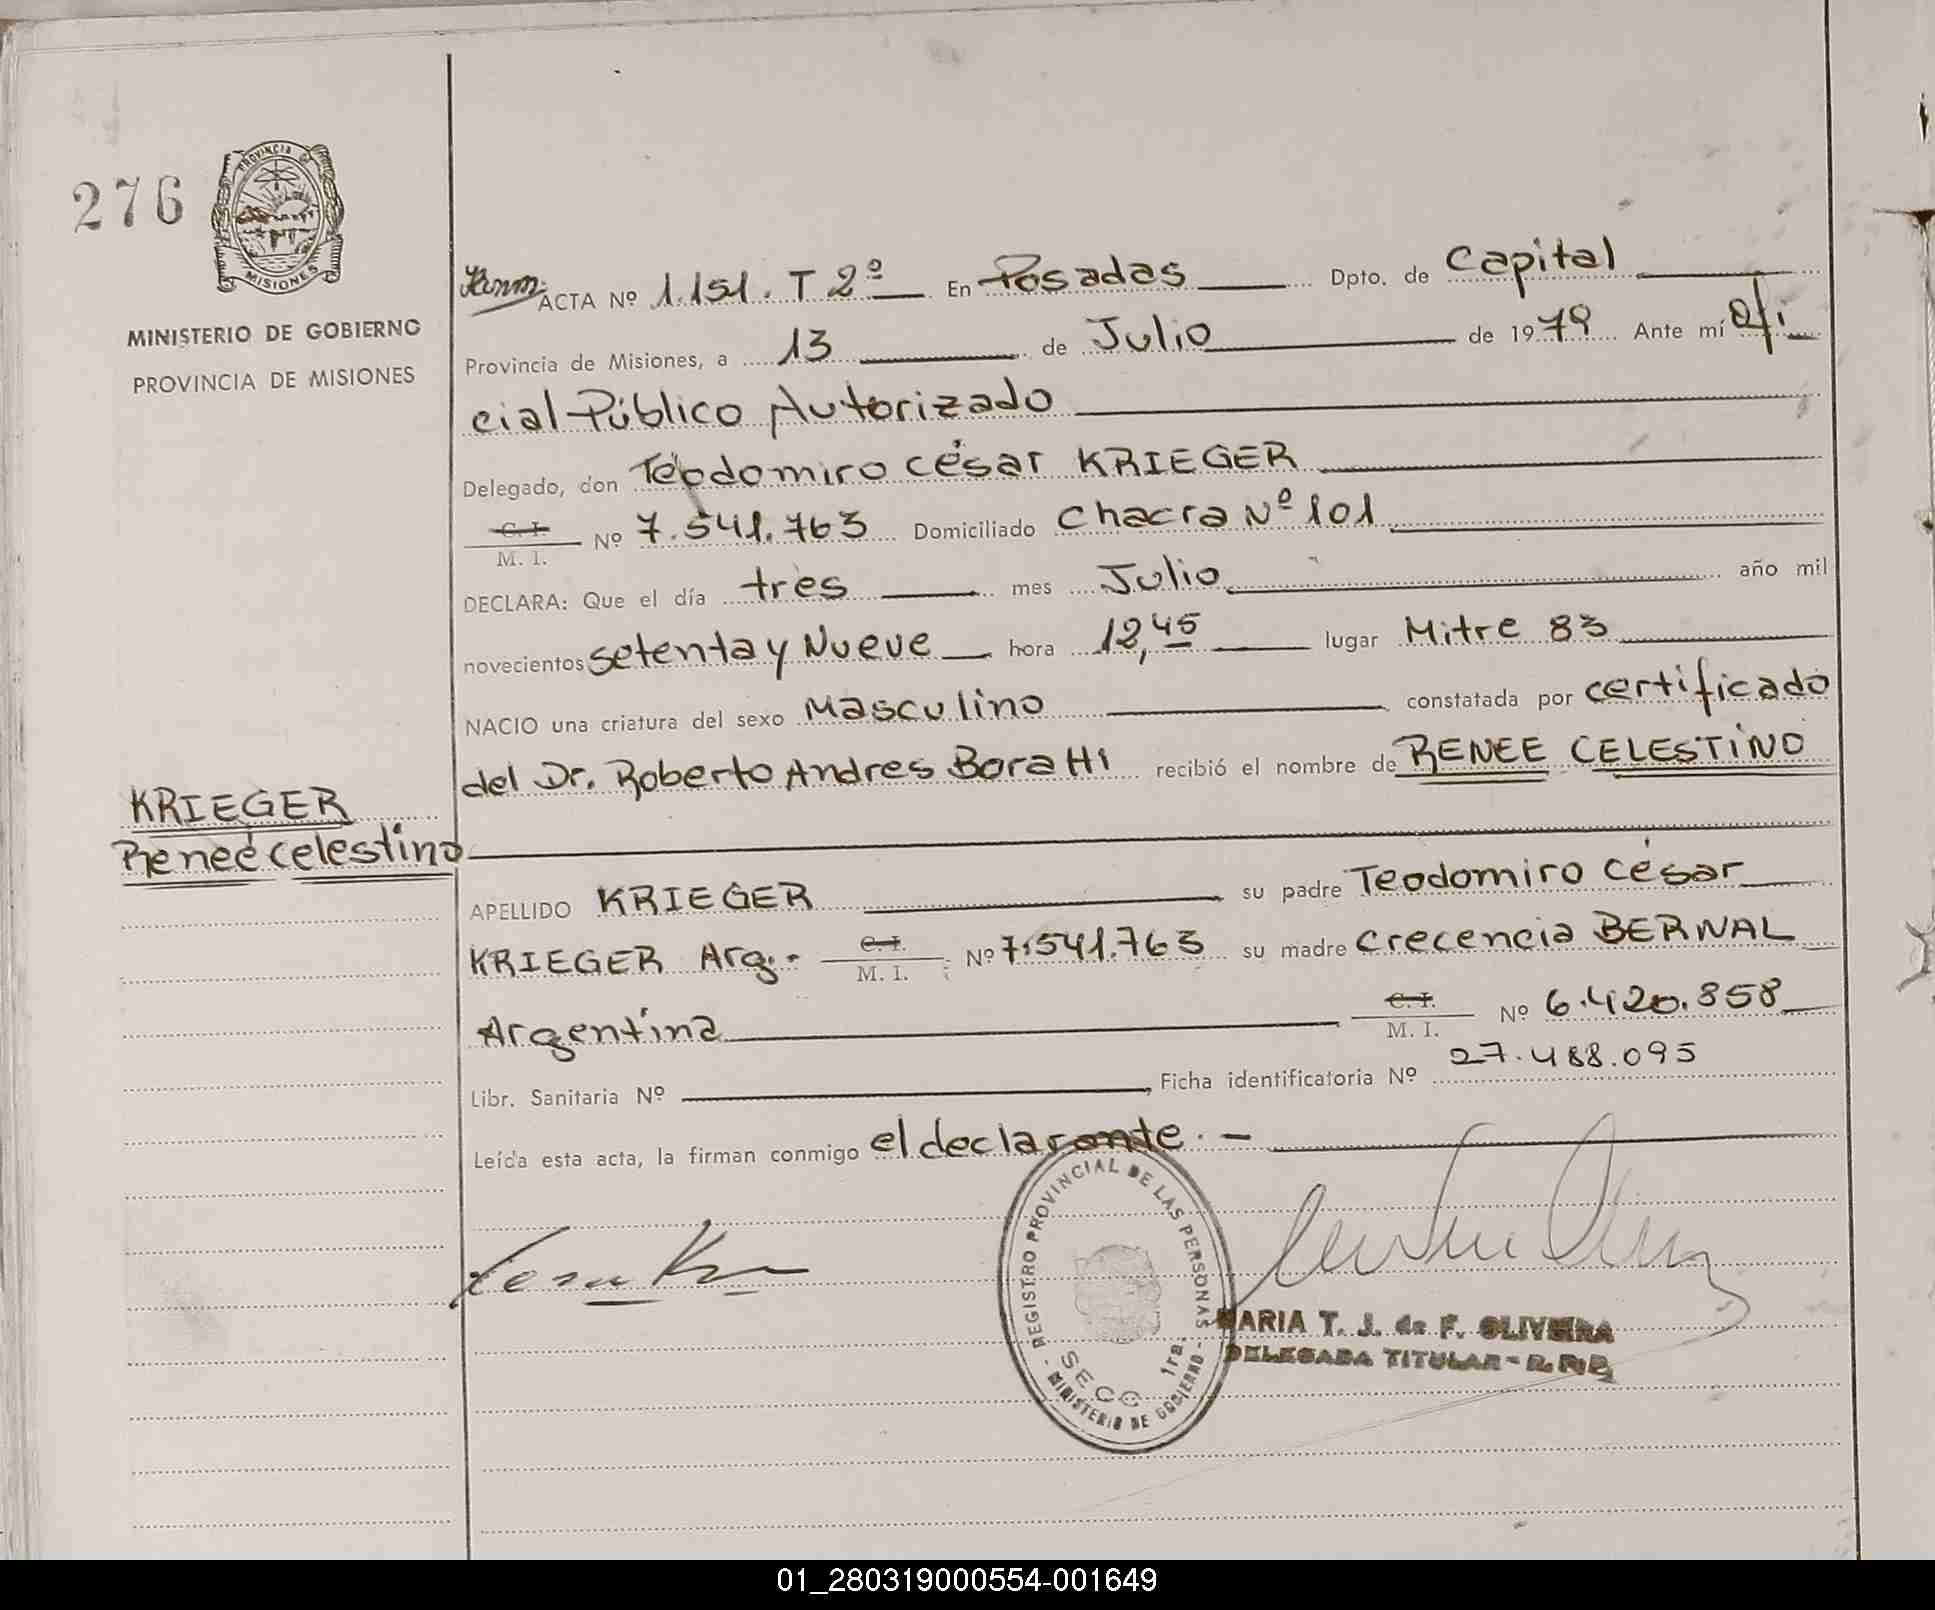 276
PROVINCIA DE
MISIONES
MINISTERIO DE GOBIERNO
PROVINCIA DE MISIONES
ACTA Nº 1.151. T 2º En Posadas Dpto. de Capital
Provincia de Misiones, a 13 de Julio de 1979 Ante mí Ofi
cial Público Autorizado
Delegado, don Teodomiro César KRIEGER
C. I.
M. I. Nº 7.541.763 Domiciliado Chacra Nº 101
DECLARA: Que el día tres mes Julio año mil
novecientos setenta y Nueve hora 12,45 lugar Mitre 83
NACIO una criatura del sexo Masculino constatada por certificado
del Dr. Roberto Andres Boratti recibió el nombre de RENEE CELESTINO
KRIEGER
Reneé celestino
APELLIDO KRIEGER su padre Teodomiro César
KRIEGER Arg.- C. I. M. I. Nº 7.541.763 su madre Crecencia BERNAL
Argentina C. I. M. I. Nº 6.420.858
Libr. Sanitaria Nº , Ficha identificatoria Nº 27.488.095
Leída esta acta, la firman conmigo el declarante.-
REGISTRO PROVINCIAL DE LAS PERSONAS
SECC 1ra.
- MINISTERIO DE GOBIERNO -
MARIA T. J. de F. OLIVEIRA
DELEGADA TITULAR - R.P.P.
01_280319000554-001649